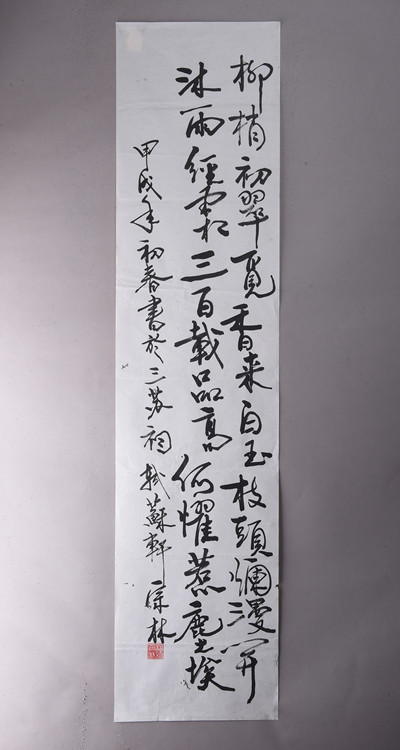 柳梢初翠覓香来白玉枝頭爛漫開
沐雨經霜三百載品高何懼惹塵埃
甲戌年初春書於三苏祠軾蘇軒宗林